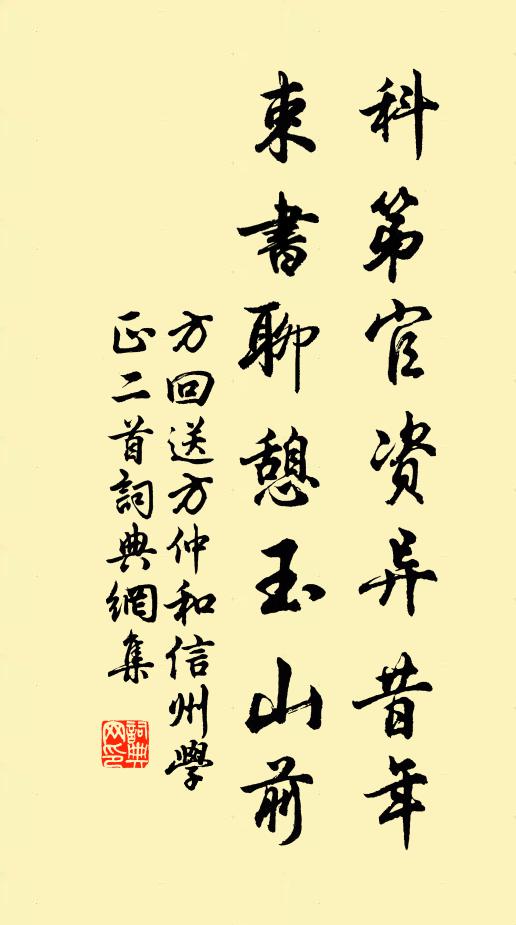 科第官资异昔年
束書聊憩玉山前
方回送方仲和信州學
正二首詞典網集
詞典
网印